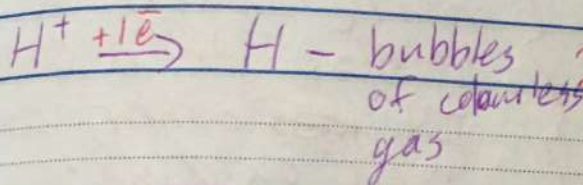 H⁺ +1ē → H - bubbles
of colourless
gas